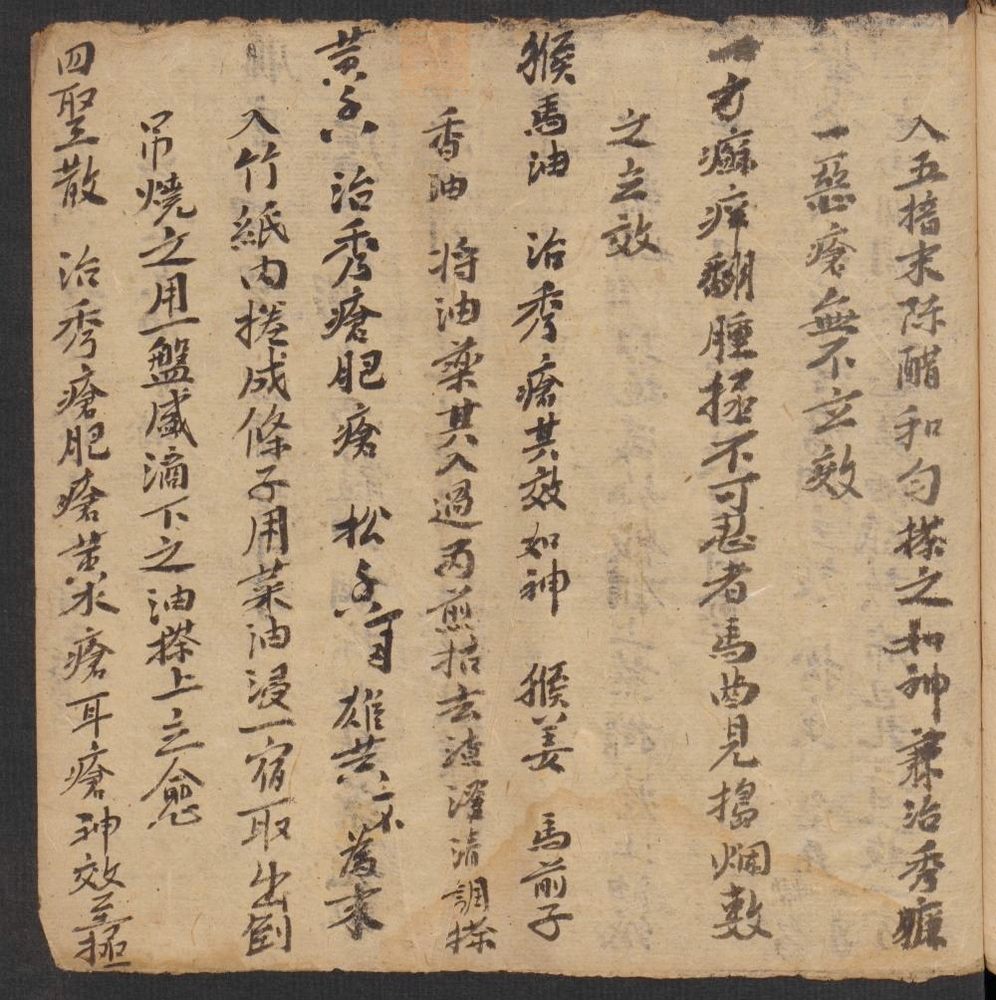 入五掊末陈醋和匀搽之如神兼治秀癞
一惡瘡無不立效
一方癞痒翻腫極不可忍者馬齿見搗烂敷
之立效
猴馬油 治秀瘡其效如神 猴姜 馬前子
香油 将油藥其入過丙煎枯去渣澄清調搽
黄香 治秀瘡肥瘡 松香 雄黄 為末
入竹紙内捲成條子用菜油浸一宿取出倒
吊燒之用一盤盛滴下之油搽上立愈
四聖散 治秀瘡肥瘡黄水瘡耳瘡神效